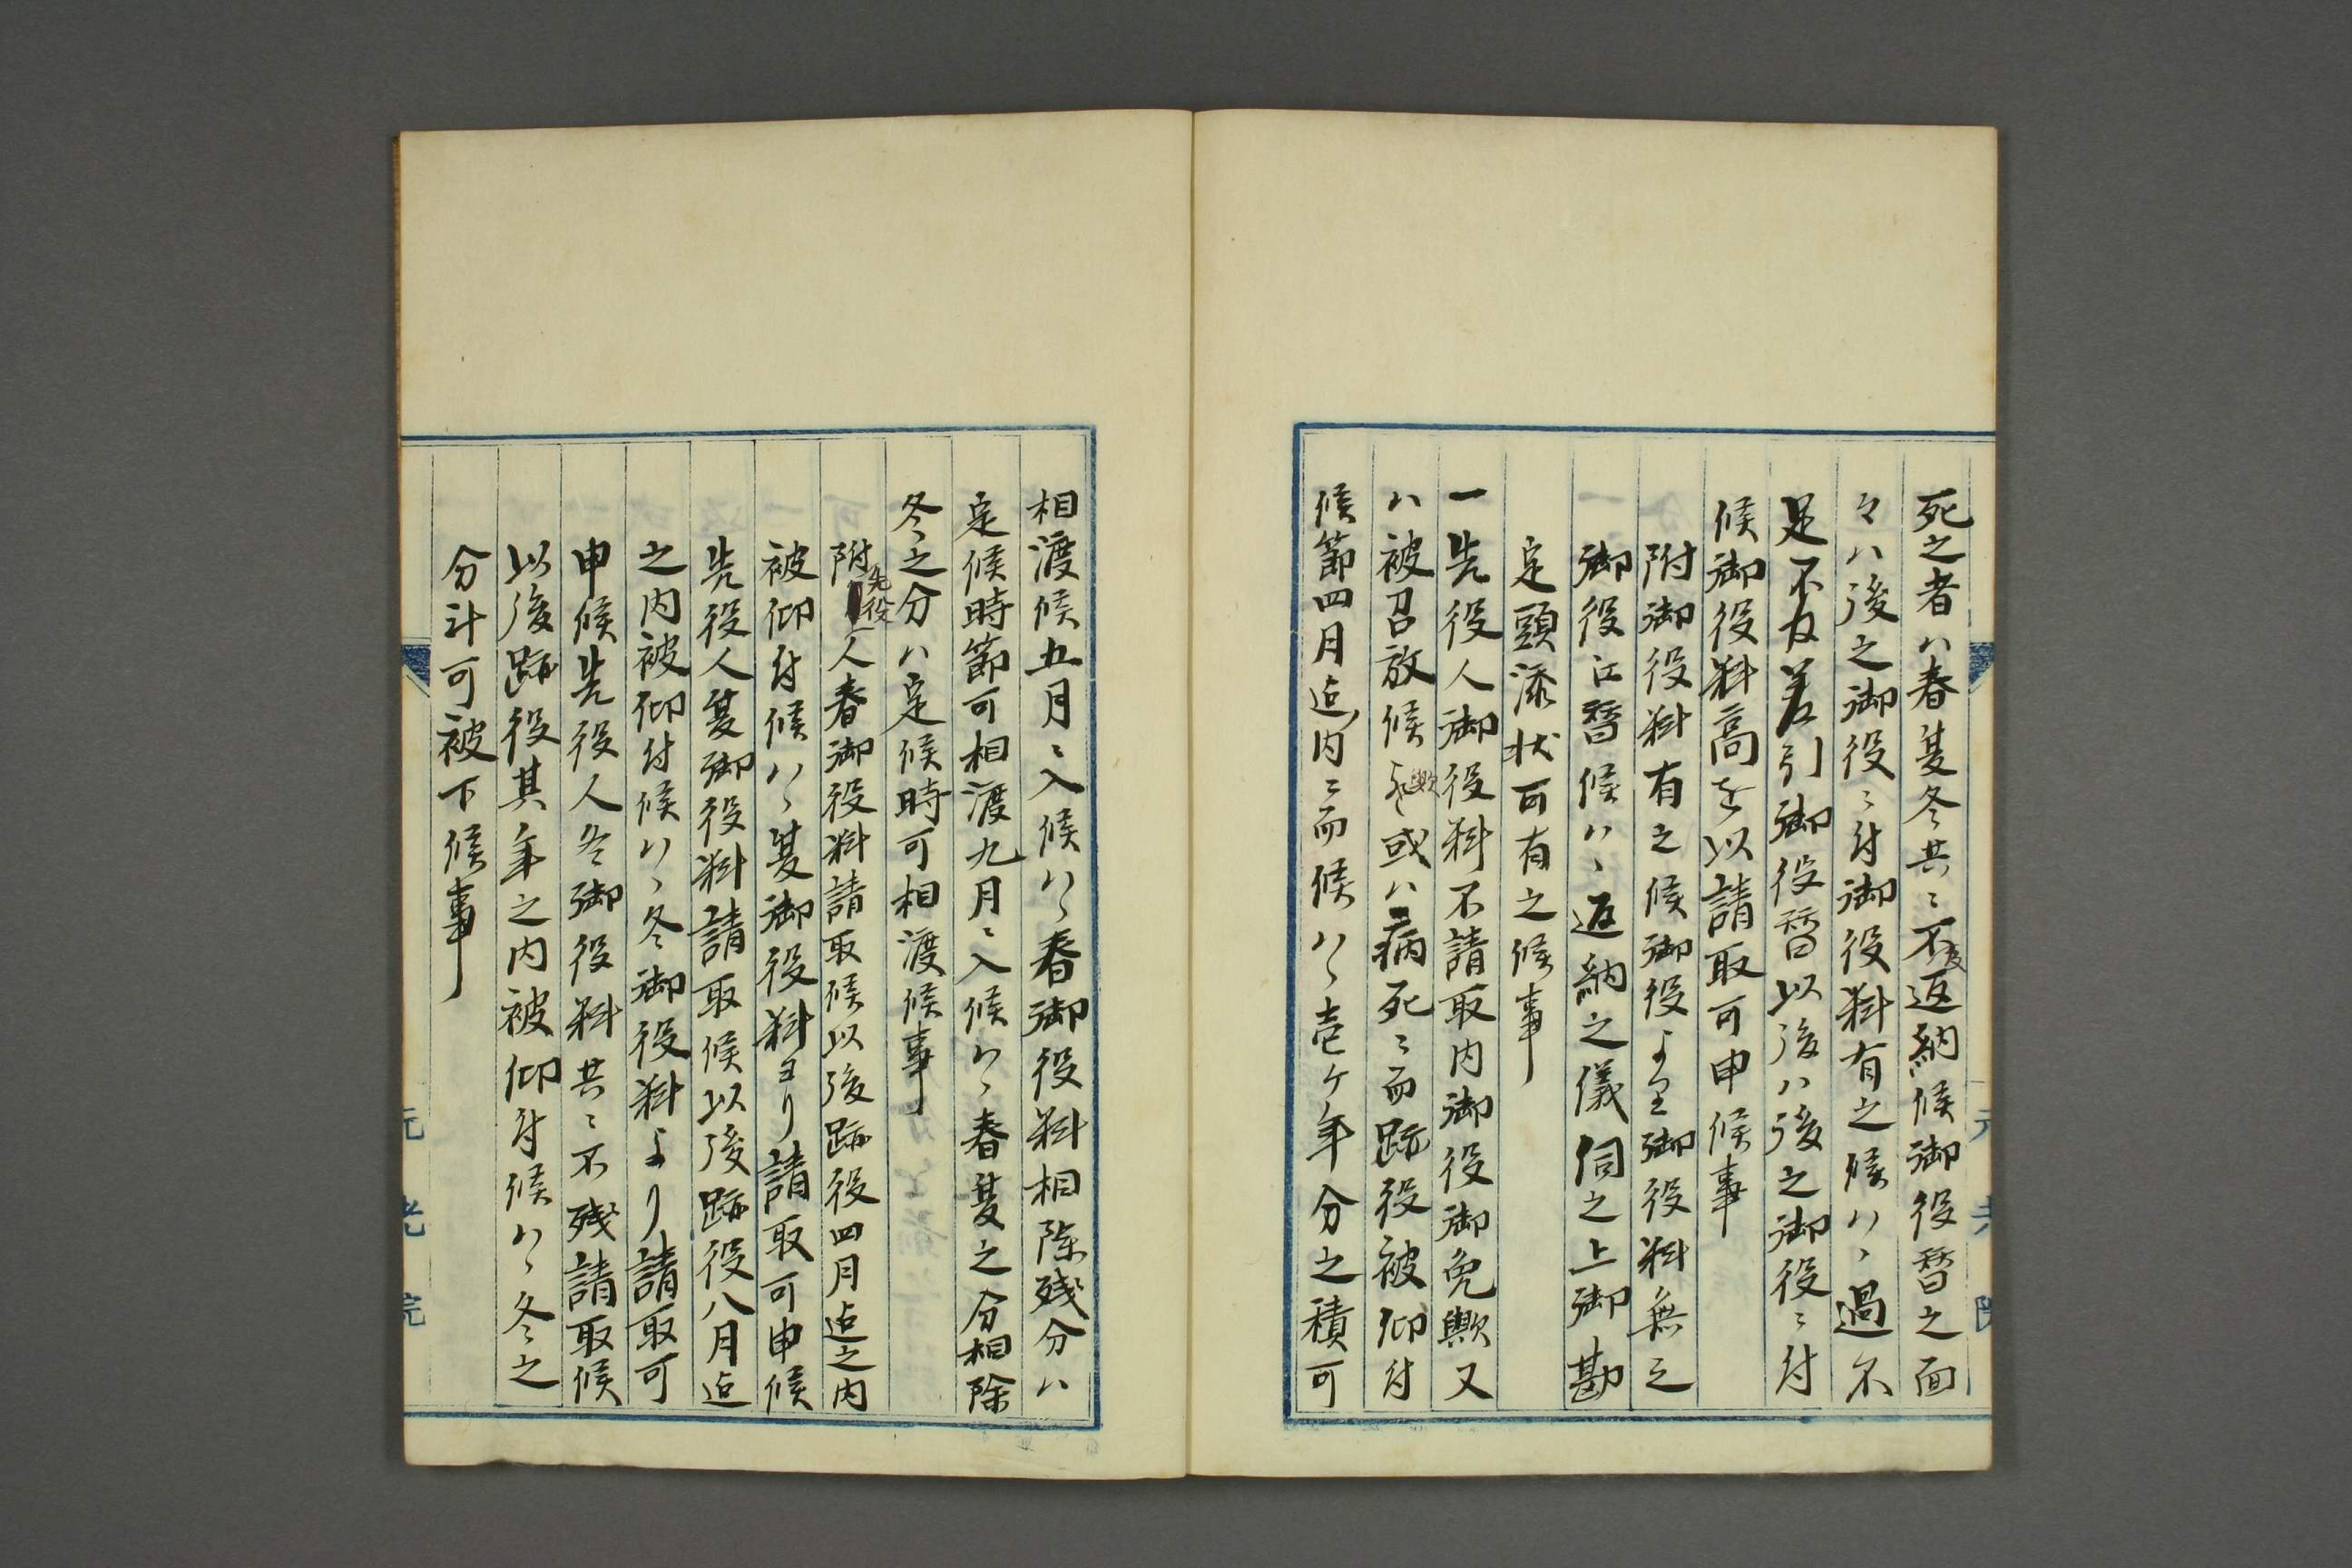 死之者ハ春夏冬共ニ不及返納候御役替之面
々ハ後之御役ニ付御役料有之候ハヽ過不
足不及差引御役替以後ハ後之御役ニ付
候御役料高を以請取可申候事
附御役料有之候御役より御役料無之
御役江替候ハヽ返納之儀伺之上御勘
定頭添状可有之候事
一先役人御役料不請取内御役御免歟又
ハ被召放候歟或ハ病死ニ而跡役被仰付
候節四月迄内ニ而候ハヽ壱ケ年分之積可
相渡候五月ニ入候ハヽ春御役料相除残分ハ
定候時節可相渡九月ニ入候ハヽ春夏之分相除
冬之分ハ定候時可相渡候事
附先役人春御役料請取候以後跡役四月迄之内
被仰付候ハヽ夏御役料ヨリ請取可申候
先役人夏御役料請取候以後跡役八月迄
之内被仰付候ハヽ冬御役料より請取可
申候先役人冬御役料共ニ不残請取候
以後跡役其年之内被仰付候ハヽ冬之
分計可被下候事
元老院